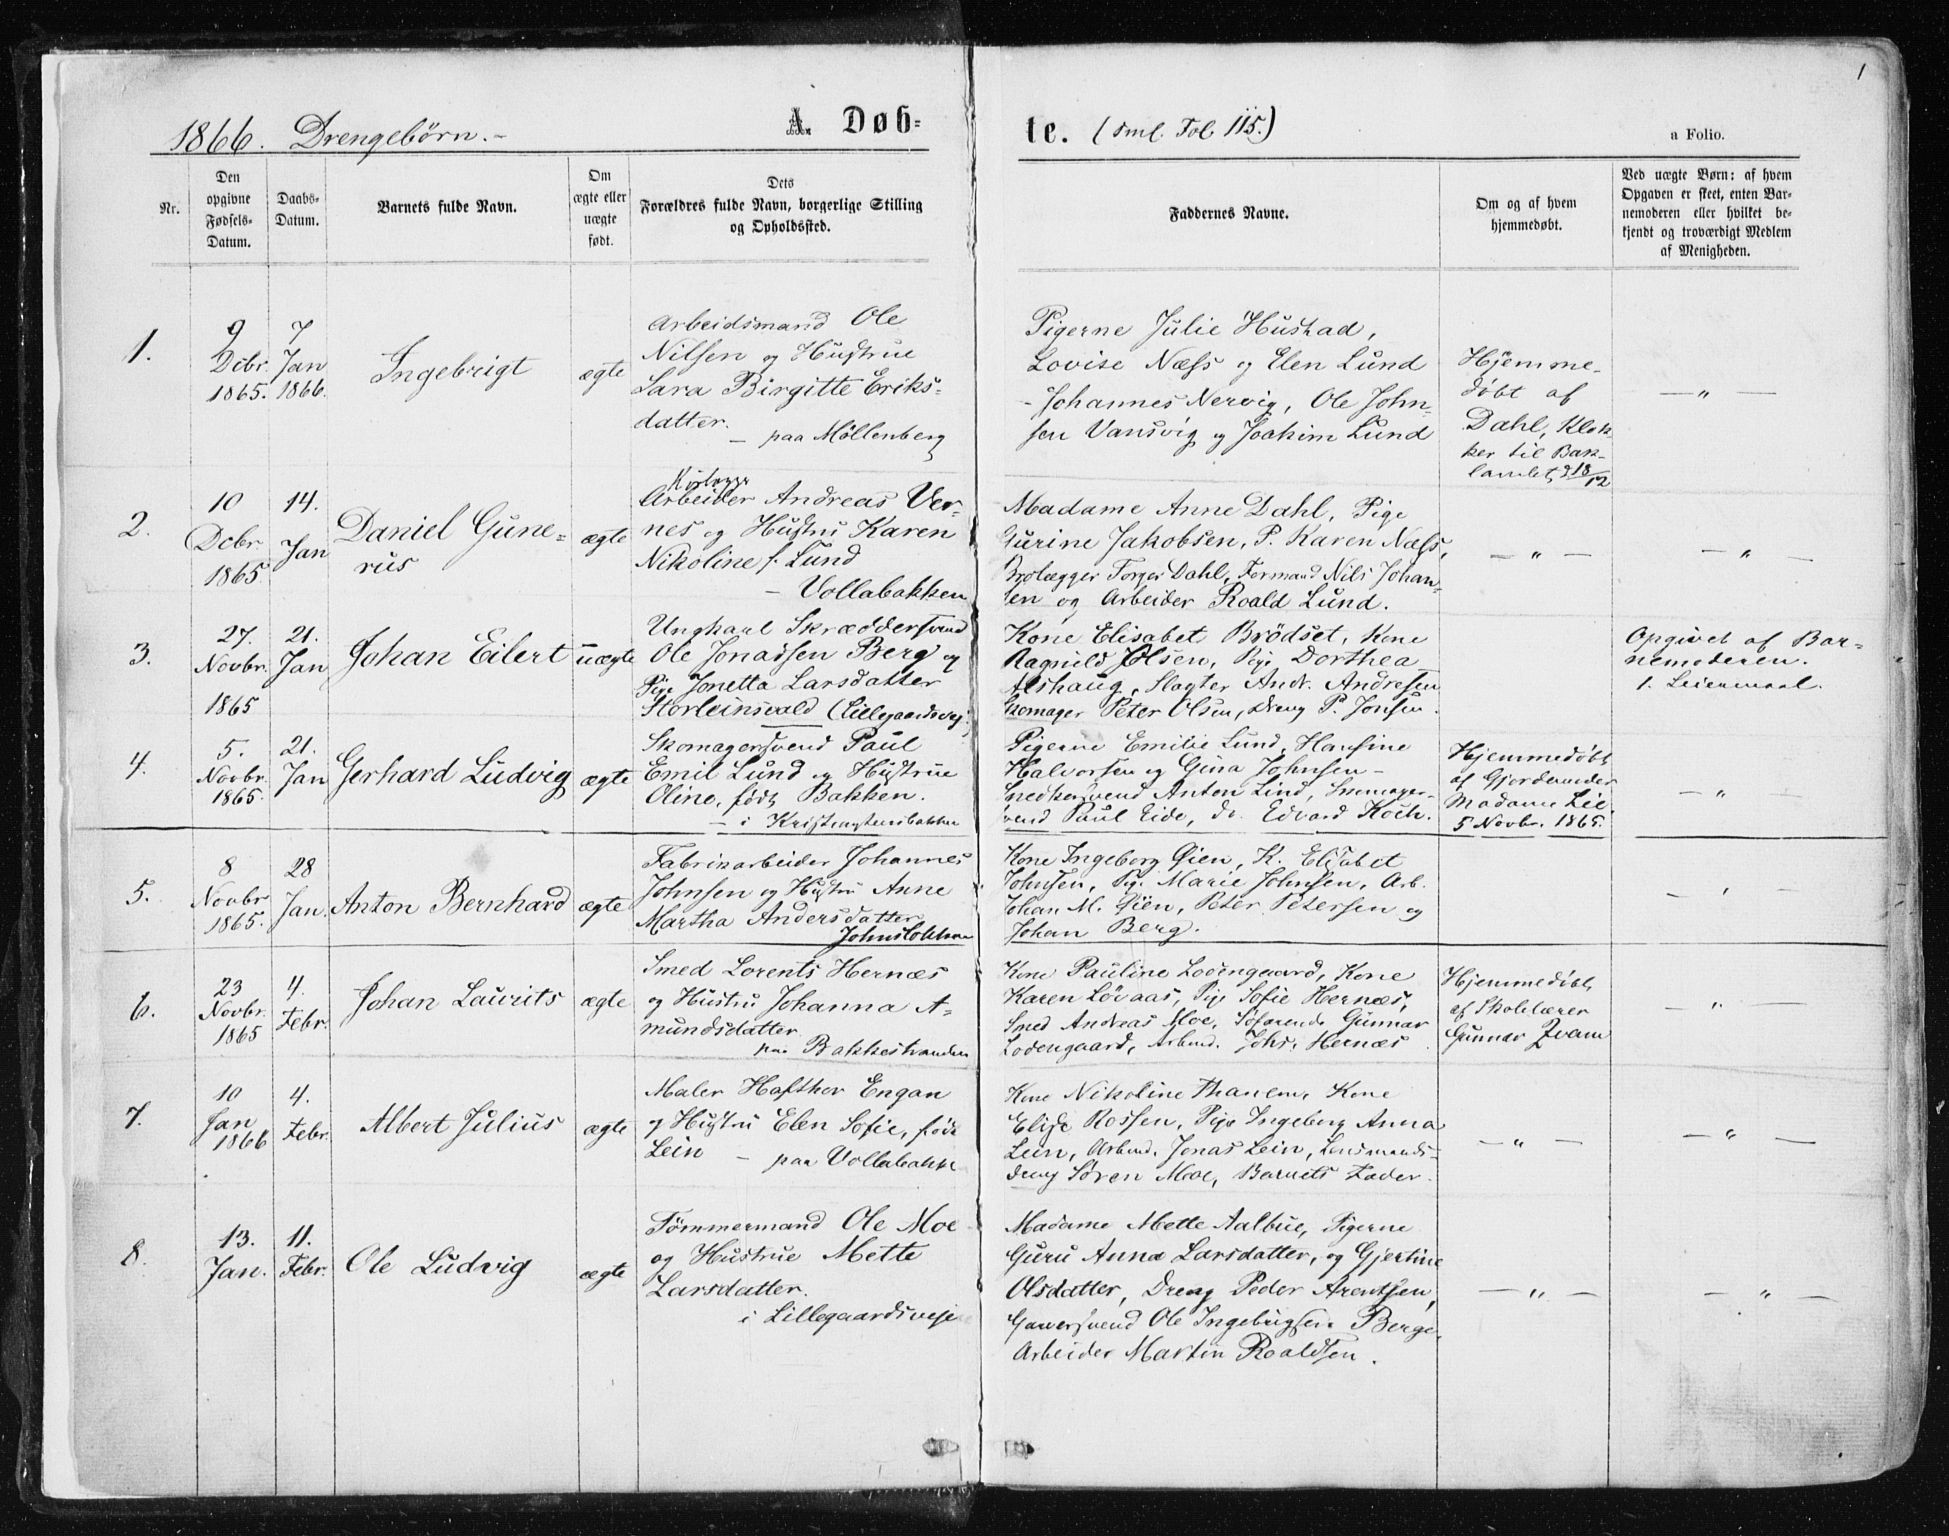 1
1866. Drengebørn.-
A. Døb-
te. (sml. Fol. 115.)
a Folio.
Nr.
Den opgivne Fødsels-Datum.
Daabs-Datum.
Barnets fulde Navn.
Om ægte eller uægte født.
Dets Forældres fulde Navn, borgerlige Stilling og Opholdssted.
Faddernes Navne.
Om og af hvem hjemmedøbt.
Ved uægte Børn: af hvem Opgaven er skeet, enten Barnemoderen eller hvilket bekjendt og troværdigt Medlem af Menigheden.
1.
9 Dcbr. 1865.
7 Jan 1866.
Ingebrigt
ægte
Arbeidsmand Ole
Nilsen og Hustrue
Sara Birgitte Eriks-
datter.
- paa Möllenberg
Pigerne Julie Hustad,
Lovise Næss og Elen Lund
- Johannes Nervig, Ole John-
sen Vansvig og Joakim Lund
Hjemme-
døbt af
Dahl, Klok-
ker til Bak-
landet, d 18/12
— " —
2.
10 Dcbr. 1865
14. Jan
Daniel Gune-
rus
ægte
Arbeider Andreas Ver-
nes og Hustru Karen
Nikoline f. Lund
- Vollabakken
Madame Anne Dahl, Pige
Gurine Jakobsen, P. Karen Næss,
Brolægger Torger Dahl, Formand Nils Johan-
sen og Arbeider Roald Lund.
— " —
— " —
3.
27. Novbr. 1865
21. Jan
Johan Eilert
uægte
Ungkarl Skræddersvend
Ole Jonassen Berg og
Pige Jonetta Larsdatter
Storleinsvald (Lillegaardsvej.)
Kone Elisabet Brödset, Kone
Ragnild Olsen, Pige Dorthea
Alshaug, Slagter Andr. Andresen
Skomager Peter Olsen, Dreng P. Jonsen.
Opgivet af Bar-
nemoderen.
1. Leiermaal.
4.
5. Novbr. 1865.
21. Jan
Gerhard Ludvig
ægte
Skomagersvend Paul
Emil Lund og Hustrue
Oline, født Bakken.
- i Kristiagtensbakken
Pigerne Emilie Lund, Hansine
Halvorsen og Gina Johnsen -
Snedkersvend Anton Lind, Skomager-
svend Paul Eide, do. Edvard Koch.
Hjemmedøbt
af Gjordemoder
Madame Lie
5 Novbr. 1865.
— " —
5.
8 Novbr 1865.
28 Jan.
Anton Bernhard
ægte
Fabrikarbeider Johannes
Johnsen og Hustru Anne
Martha Andersdatter
Kone Ingeborg Øien, K. Elisabet
Johnsen, Pige Marie Johnsen, Arb.
Johan M. Øien, Peter Petersen og
Johan Berg.
6.
23 Novbr. 1865
4. Febr.
Johan Laurits
ægte
Smed Lorents Hernæs
og Hustru Johanna A-
mundsdatter
paa Bakkestranden
Kone Pauline Lodengaard, Kone
Karen Løvaas, Pige Sofie Hernæs,
Smed Andreas Moe, Søfarende Gunnar
Lodengaard, Arbmd. Johs. Hernæs
Hjemmedøbt
af Skolelærer
Gunnar Kvam
— " —
7.
10 Jan 1866
4. Febr.
Albert Julius
ægte
Maler Hafthor Engan
og Hustru Elen Sofie, født
Lein - paa Vollabakken
Kone Nikoline Thanem, Kone
Elise Rossen, Pige Ingeborg Anna
Lein, Arbmd. Jonas Lein, Lensmands-
dreng Søren Moe, Barnets Fader.
— " —
— " —
8.
13. Jan.
11. Febr.
Ole Ludvig
ægte
Tömmermand Ole Moe
og Hustrue Mette
Larsdatter.
i Lillegaardsveje
Madame Mette Aalbue, Pigerne
Guru Anna Larsdatter, og Gjertine
Olsdatter, Dreng Peder Arentsen,
Garversvend Ole Ingebrigtsen Berge,
Arbeider Martin Roaldsen.
— " —
— " —